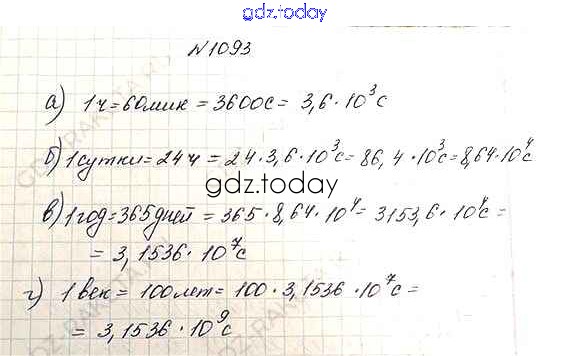 gdz.today
№1093
а) 1ч=60мин = 3600с = 3,6·10³с
б) 1 сутки = 24ч = 24·3,6·10³с = 86,4·10³с = 8,64·10⁴с
gdz.today
в) 1 год = 365 дней = 365·8,64·10⁴ = 3153,6·10⁴с =
= 3,1536·10⁷с
г) 1 век = 100 лет = 100·3,1536·10⁷с =
= 3,1536·10⁹с